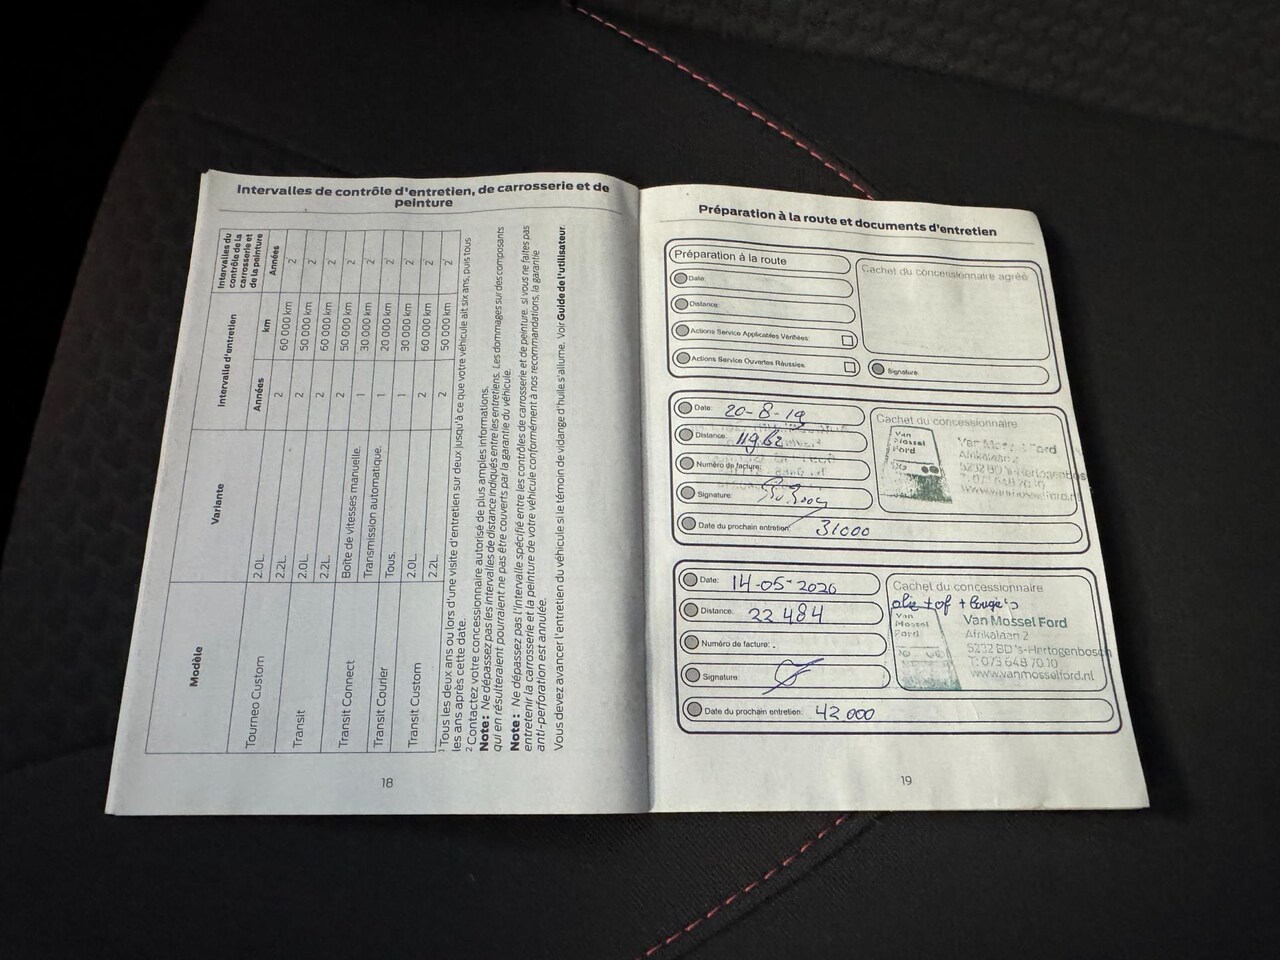 Intervalles de contrôle d'entretien, de carrosserie et de
peinture
Modèle
Variante
Intervalle d'entretien
Intervalles du
contrôle de la
carrosserie et
de la peinture
Années
km
Années
Tourneo Custom
2.0L.
2
60 000 km
2
2.2L.
2
50 000 km
2
Transit
2.0L.
2
60 000 km
2
2.2L.
2
50 000 km
2
Transit Connect
Boîte de vitesses manuelle.
1
30 000 km
2
Transmission automatique.
1
20 000 km
2
Transit Courier
Tous.
1
30 000 km
2
Transit Custom
2.0L.
2
60 000 km
2
2.2L.
2
50 000 km
2
1 Tous les deux ans ou lors d'une visite d'entretien sur deux jusqu'à ce que votre véhicule ait six ans, puis tous
les ans après cette date.
2 Contactez votre concessionnaire autorisé de plus amples informations.
Note : Ne dépassez pas les intervalles de distance indiqués entre les entretiens. Les dommages sur des composants
qui en résulteraient pourraient ne pas être couverts par la garantie du véhicule.
Note : Ne dépassez pas l'intervalle spécifié entre les contrôles de carrosserie et de peinture. si vous ne faites pas
entretenir la carrosserie et la peinture de votre véhicule conformément à nos recommandations, la garantie
anti-perforation est annulée.
Vous devez avancer l'entretien du véhicule si le témoin de vidange d'huile s'allume. Voir Guide de l'utilisateur.
18
Préparation à la route et documents d'entretien
Préparation à la route
Date:
Distance:
Actions Service Applicables Vérifiées:
Actions Service Ouvertes Réussies:
Cachet du concessionnaire agréé
Signature:
Date: 20-8-19
Distance: 11962
Numéro de facture:
Signature:
Date du prochain entretien: 31000
Cachet du concessionnaire
Van
Mossel
Ford
Van Mossel Ford
Afrikalaan 2
5232 BD 's-Hertogenbos
T: 073 648 70 10
www.vanmosselford.nl
Date: 14-05-2020
Distance: 22 484
Numéro de facture:
Signature:
Date du prochain entretien: 42 000
Cachet du concessionnaire
olie + of + bougie's
Van
Mossel
Ford
Van Mossel Ford
Afrikalaan 2
5232 BD 's-Hertogenbosch
T: 073 648 70 10
www.vanmosselford.nl
19